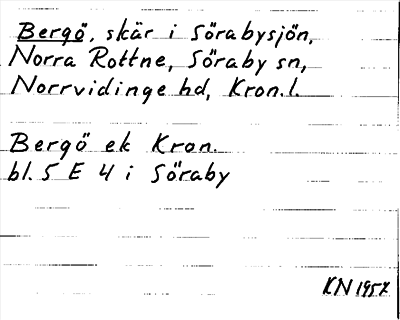 Bergö, skär i Sörabysjön,
Norra Rottne, Söraby sn,
Norrvidinge hd, Kron.l.
Bergö ek Kron.
bl. 5 E 4 i Söraby
KN 1957